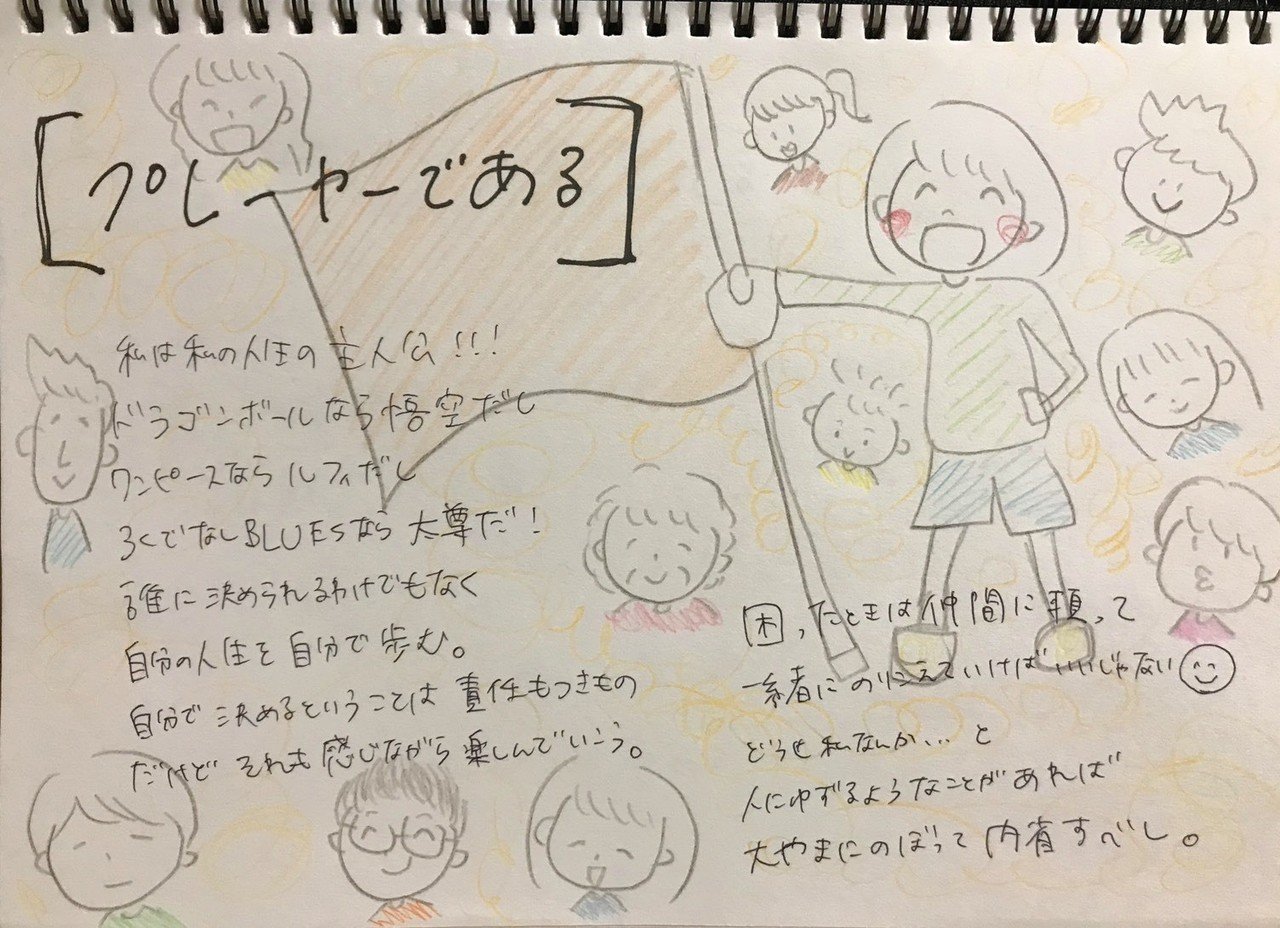 [プレーヤーである]
私は私の人生の主人公!!!
ドラゴンボールなら悟空だし
ワンピースならルフィだし
ろくでなしBLUESなら太尊だ!
誰に決められるわけでもなく
自分の人生を自分で歩む。
自分で決めるということは責任もつきもの
だけどそれも感じながら楽しんでいこう。
困ったときは仲間に頼って
一緒にのりこえていけばいいじゃない
どうせ私なんか...と
人にゆずるようなことがあれば
大やまにのぼって内省すべし。